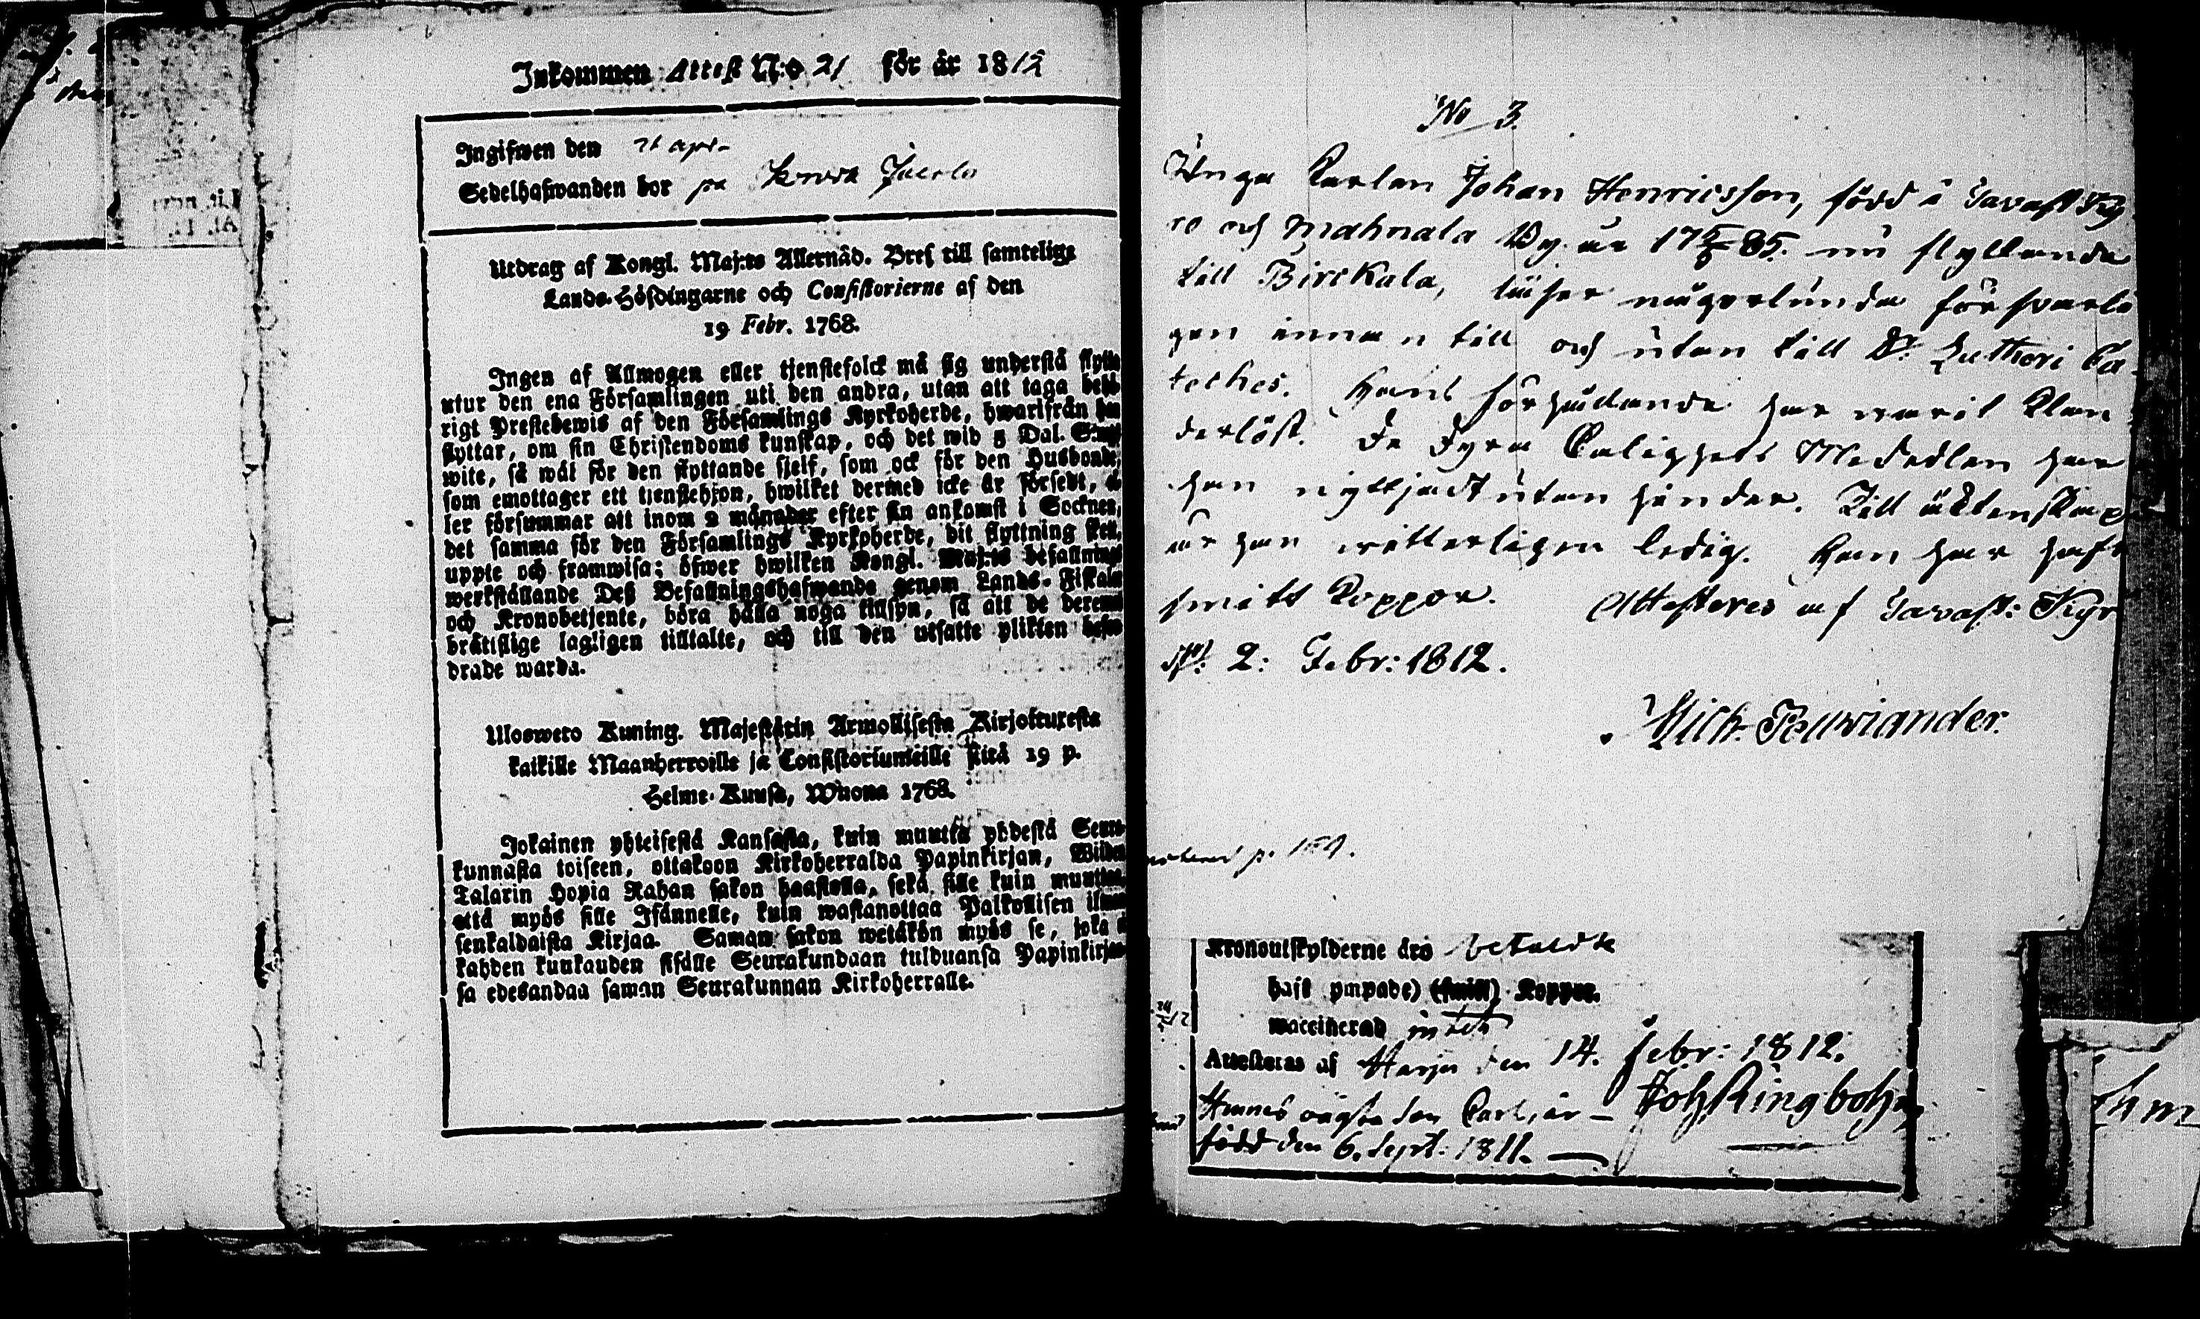 Inkommen Attest N:o 21 för år 1812
Ingifwen den 21 apr.
Sedelhafwanden bor på
Utdrag af Kongl. Maj:ts Allernåd. Bref till samtelige
Lands-Höfdingarne och Consistorierne af den
19 Febr. 1768.
Ingen af Allmogen eller tjenstefolck må sig understå flytta
utur den ena Församlingen uti den andra, utan att taga behö-
rigt Prestebewis af den Församlings Kyrkoherde, hwarifrån han
flyttar, om sin Christendoms kunskap, och det wid 5 Dal. S:mt
wite, så wäl för den flyttande sielf, som ock för den Husbonde,
som emottager ett tienstehion, hwilket dermed icke är försedt, el-
ler försummar att inom 2 månader efter sin ankomst i Socknen,
det samma för den Församlings Kyrkoherde, dit flyttning skett,
uppte och framwisa; öfwer hwilken Kongl. Maj:ts befallnings
werkställande Deß Befallningshafwande genom Lands-Fiskaler
och Kronobetjente, böra hålla noga tillsyn, så att de deremot
bråttslige lagligen tilltalte, och till den utsatte plikten befor-
drade warda.
Uloswero Kuning. Majestätin Armollisesta Kirjoituxesta
kaikille Maanherroille ja Consistoriumeille siitä 19 p.
Helme-Kuusa, Wuona 1768.
Jokainen yhteisestä Kansasta, kuin muutta yhdestä Seura-
kunnasta toiseen, ottakoon Kirkoherralda Papinkirjan, Wiiden
Talarin Hopia Rahan sakon haastolla, sekä sille kuin muuttaa,
että myös sille Isännelle, kuin wastanottaa Palkollisen ilman
senkaldaista Kirjaa. Saman sakon wetäkön myös se, joka ei
kahden kuukauden sisälle Seurakundaan tulduansa Papinkirjan-
sa edesandaa saman Seurakunnan Kirkoherralle.
No 3.
Unga Karlen Johan Henricsson, född i Tavast Ky
ro och Mahnala By år 17 85. nu flyttande
till Birckala, läser någorlunda försvarli
gen innan till och utan till Dr. Lutheri Ca-
teches. Hans förhållande har warit klan
derlöst. De dyra Salighets Mededlen har
han nyttjadt utan hinder. Till äktenskap
är han witterligen ledig. Han har haft
smitt koppor. Attesteres af Tavast: Kyr
2: Febr: 1812.
Mich. Fellwiander.
noterad p. 159.
Kronoutskylderne äro betaldte
haft (ympade) (smitt) Koppor.
vaccinerad
Attesteras af Harju den 14. Febr: 1812.
Hennes oägta son Carl, är — Joh Ringbohm
född den 6. Sept: 1811. —